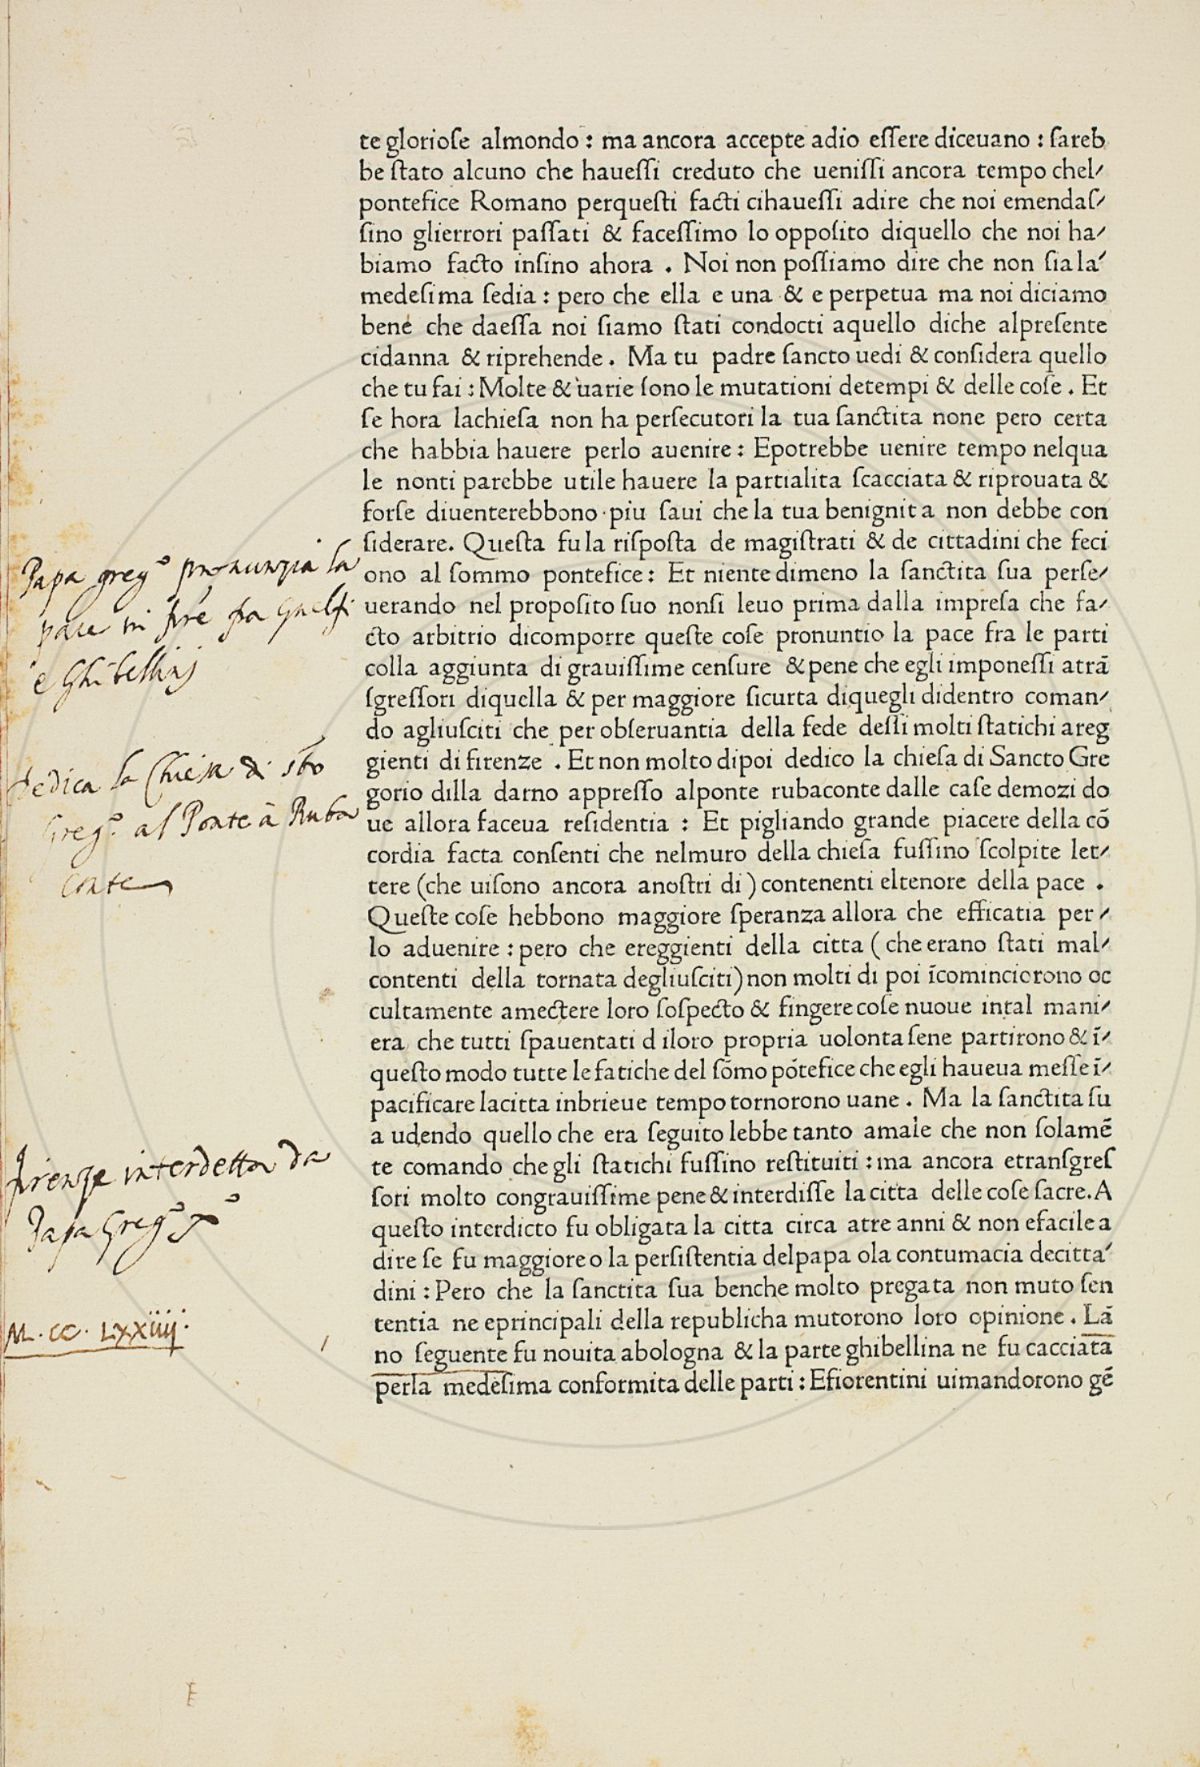 te glorioſe almondo : ma ancora accepte adio eſſere diceuano : ſareb
be ſtato alcuno che haueſſi creduto che ueniſſi ancora tempo chel⸗
pontefice Romano perqueſti facti cihaueſſi adire che noi emendaſ⸗
ſino glierrori paſſati & faceſſimo lo oppoſito diquello che noi ha⸗
biamo facto inſino ahora . Noi non poſſiamo dire che non ſia la⸗
medeſima ſedia : pero che ella e una & e perpetua ma noi diciamo
bene che daeſſa noi ſiamo ſtati condocti aquello diche alpreſente
cidanna & riprehende . Ma tu padre ſancto uedi & conſidera quello
che tu fai : Molte & uarie ſono le mutationi detempi & delle coſe . Et
ſe hora lachieſa non ha perſecutori la tua ſanctita none pero certa
che habbia hauere perlo auenire : Epotrebbe uenire tempo nelqua
le nonti parebbe utile hauere la partialita ſcacciata & riprouata &
forſe diuenterebbono più ſaui che la tua benignita non debbe con
ſiderare. Queſta fu la riſpoſta de magiſtrati & de cittadini che feci
ono al ſommo pontefice : Et niente dimeno la ſanctita ſua perſe⸗
uerando nel propoſito ſuo nonſi leuo prima dalla impreſa che fa⸗
cto arbitrio dicomporre queſte coſe pronuntio la pace fra le parti
colla aggiunta di grauiſſime cenſure & pene che egli imponeſſi atrã
ſgreſſori diquella & per maggiore ſicurta diquegli didentro coman⸗
do agliuſciti che per obſeruantia della fede deſſi molti ſtatichi areg
gienti di firenze . Et non molto dipoi dedico la chieſa di Sancto Gre
gorio dilla darno appreſſo alponte rubaconte dalle caſe demozi do
ue allora faceua reſidentia : Et pigliando grande piacere della cõ
cordia facta conſenti che nelmuro della chieſa fuſſino ſcolpite let⸗
tere (che uiſono ancora anoſtri di) contenenti eltenore della pace .
Queſte coſe hebbono maggiore ſperanza allora che efficatia per⸗
lo aduenire : pero che ereggienti della citta ( che erano ſtati mal⸗
contenti della tornata degliuſciti) non molti di poi ĩcomincicrono oc
cultamente amectere loro ſoſpecto & fingere coſe nuoue intal mani⸗
era che tutti ſpauentati d iloro propria uolonta ſene partirono & ĩ⸗
queſto modo tutte le fatiche del sõmo põtefice che egli haueua meſſe ĩ⸗
pacificare lacitta inbrieue tempo tornorono uane . Ma la ſanctita ſu
a udendo quello che era ſeguito lebbe tanto amale che non ſolamẽ
te comando che gli ſtatichi fuſſino reſtituiti : ma ancora etranſgreſ
ſori molto congrauiſſime pene & interdiſſe la citta delle coſe ſacre. A
queſto interdicto fu obligata la citta circa atre anni & non efacile a
dire ſe fu maggiore o la perſiſtentia delpapa ola contumacia decitta⸗
dini : Pero che la ſanctita ſua benche molto pregata non muto ſen
tentia ne eprincipali della republicha mutorono loro opinione . Lã
no ſeguente fu nouita abologna & la parte ghibellina ne fu cacciata
perla medeſima conformita delle parti : Efiorentini uimandorono gẽ
Papa greg.º pronunzia la
pace in fire fra Guelfi
e Ghibellinj
dedica la Chiesa di sto
Greg.º al Ponte à Ruba
conte
firenze interdetta da
Papa Greg.º Xº
M. CC. LXXIIIJ.